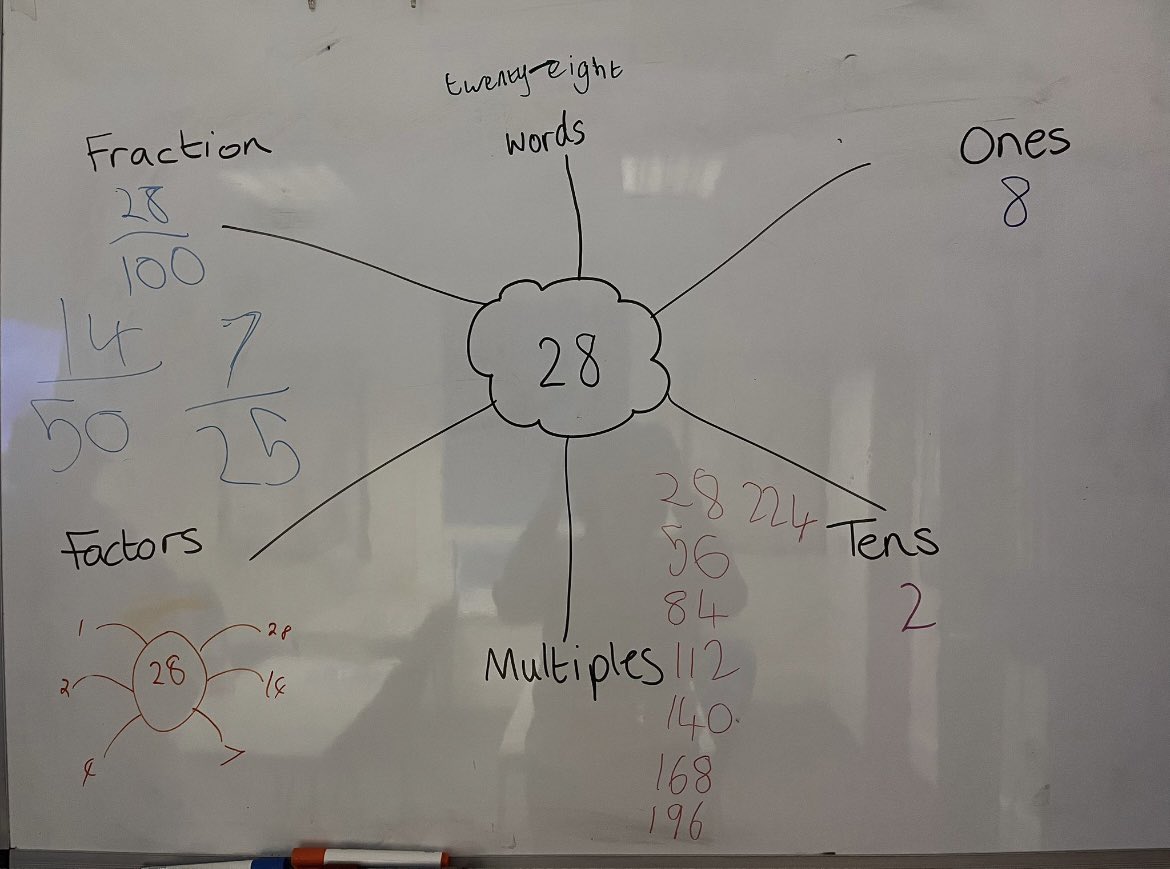 twenty-eight
words
Fraction
28
100
14
50
7
25
Ones
8
28
Factors
1
2
4
28
28
14
7
Multiples
28
56
84
112
140
168
196
224
Tens
2